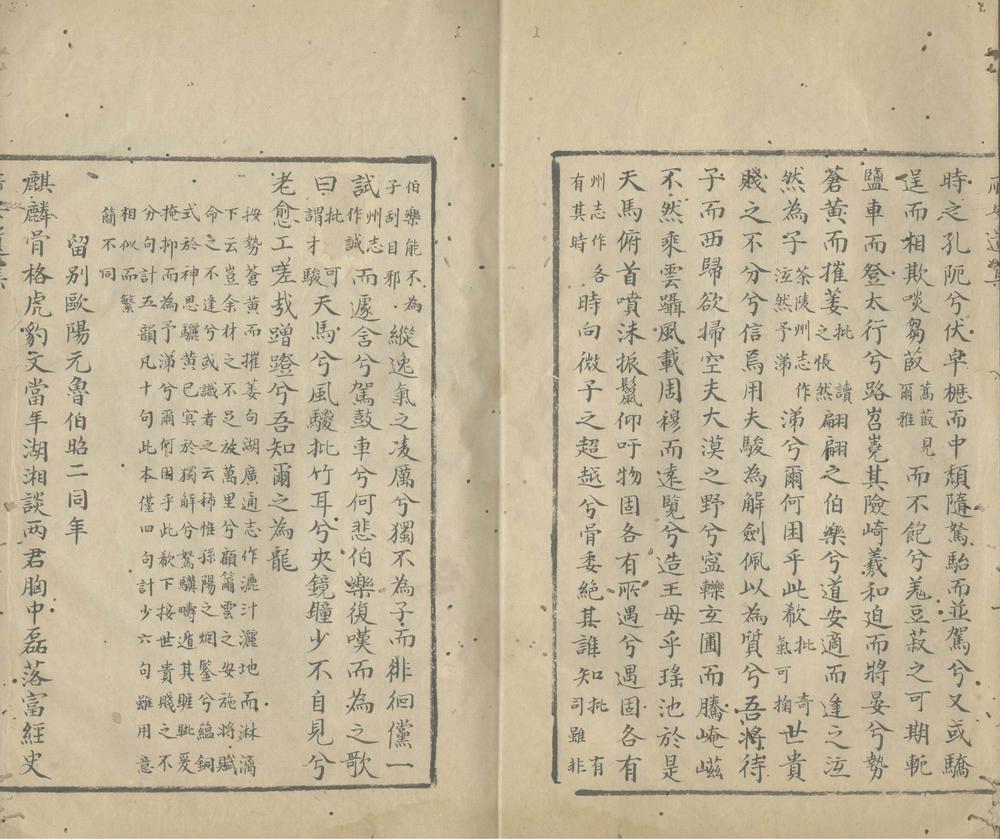 時之孔阨兮伏皁櫪而中頹隨駑駘而並駕兮又或驕
逞而相欺啖芻菆萬菆見爾雅而不飽兮羗豆菽之可期軛
鹽車而登太行兮路岧嶤其險崎羲和迫而將晏兮勢
蒼黃而摧萎批讀之悵然翩翩之伯樂兮道安適而逢之泣
然為子茶陵州志作泣然予涕涕兮爾何困乎此欷批奇氣可掬世貴
賤之不分兮信焉用夫駿為解劍佩以為質兮吾將待
子而西歸欲掃空夫大漠之野兮寍轢玄圃而騰崦嵫
不然乘雲躡風載周穆而遠覽兮造王母乎瑤池於是
天馬俯首噴沫振鬣仰吁物固各有所遇兮遇固各有
州志作各有其時時向微子之超越兮骨委絕其誰知批有司雖非
伯樂能不為子刮目邪縱逸氣之凌厲兮獨不為子而徘徊儻一
試州志作誠而遽舍兮駕鼓車兮何悲伯樂復嘆而為之歌
曰批可謂才駿天馬兮風騣批竹耳兮夾鏡瞳少不自見兮
老愈工嗟哉蹭蹬兮吾知爾之為龍
按勢蒼黃而摧萎句湖廣通志作漉汁灑地而淋漓
下云豈余材之不足放萬里兮顧籋雲之安施將賦
命之不逢兮或識者之云稀惟孫陽之烱鑒兮縕銅
式於神思驪黃已冥於獨解兮駑驥疇遁其睢眦爰
掩抑而為予涕兮爾何困乎此欷下接世貴賤之不
分句計五韻凡十句此本僅四句計少六句雖用意
相似而繁
簡不同
留別歐陽元魯伯昭二同年
麒麟骨格虎豹文當年湖湘談兩君胸中磊落富經史